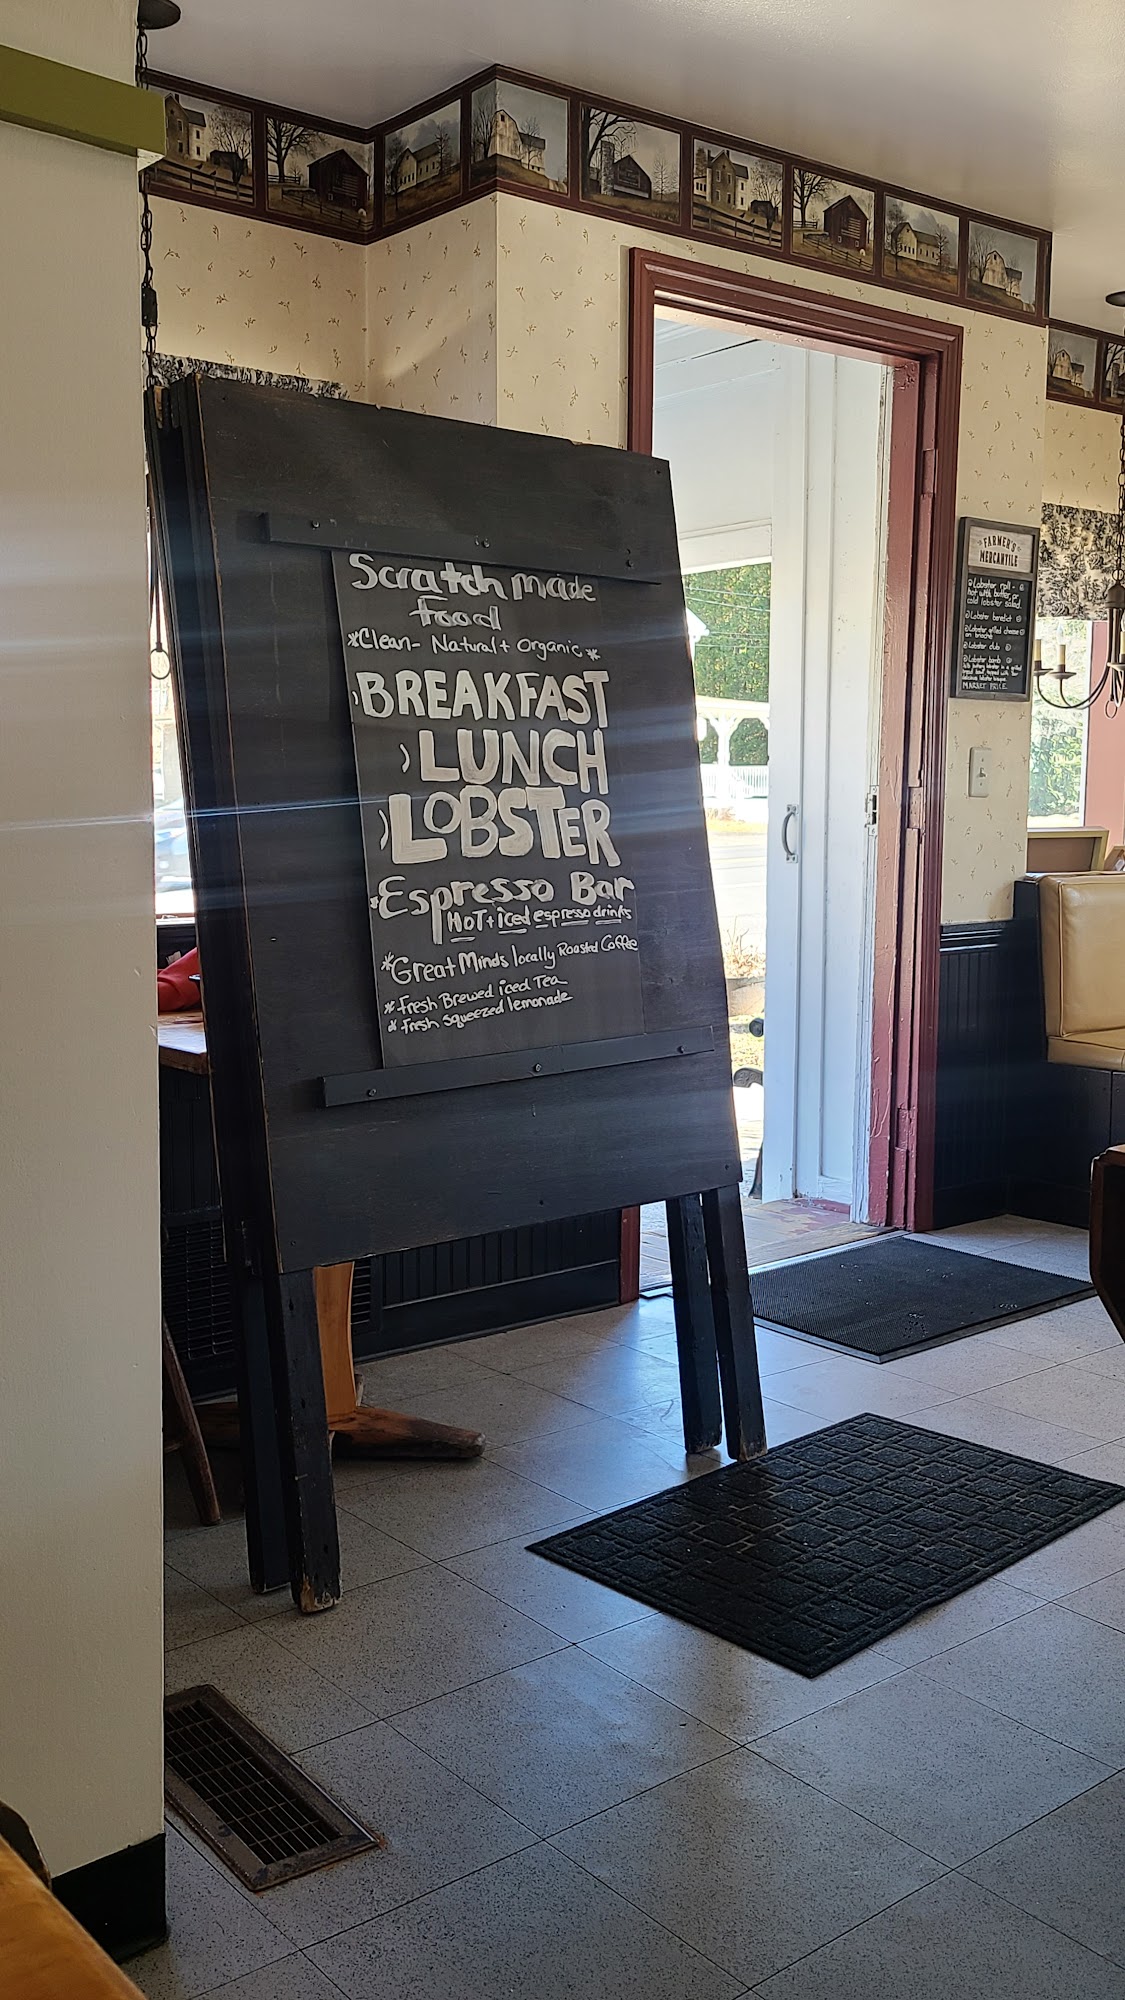 Scratch made
food
*Clean- Natural + Organic*
BREAKFAST
LUNCH
LOBSTER
*Espresso Bar
HOT + iced espresso drinks
*Great Minds locally Roasted Coffee
*Fresh Brewed iced Tea
*Fresh squeezed lemonade
FARMER'S
MERCANTILE
Lobster roll -
hot with butter or
cold lobster salad
Lobster benedict
Lobster grilled cheese
on brioche
Lobster club
Lobster bomb
MARKET PRICE